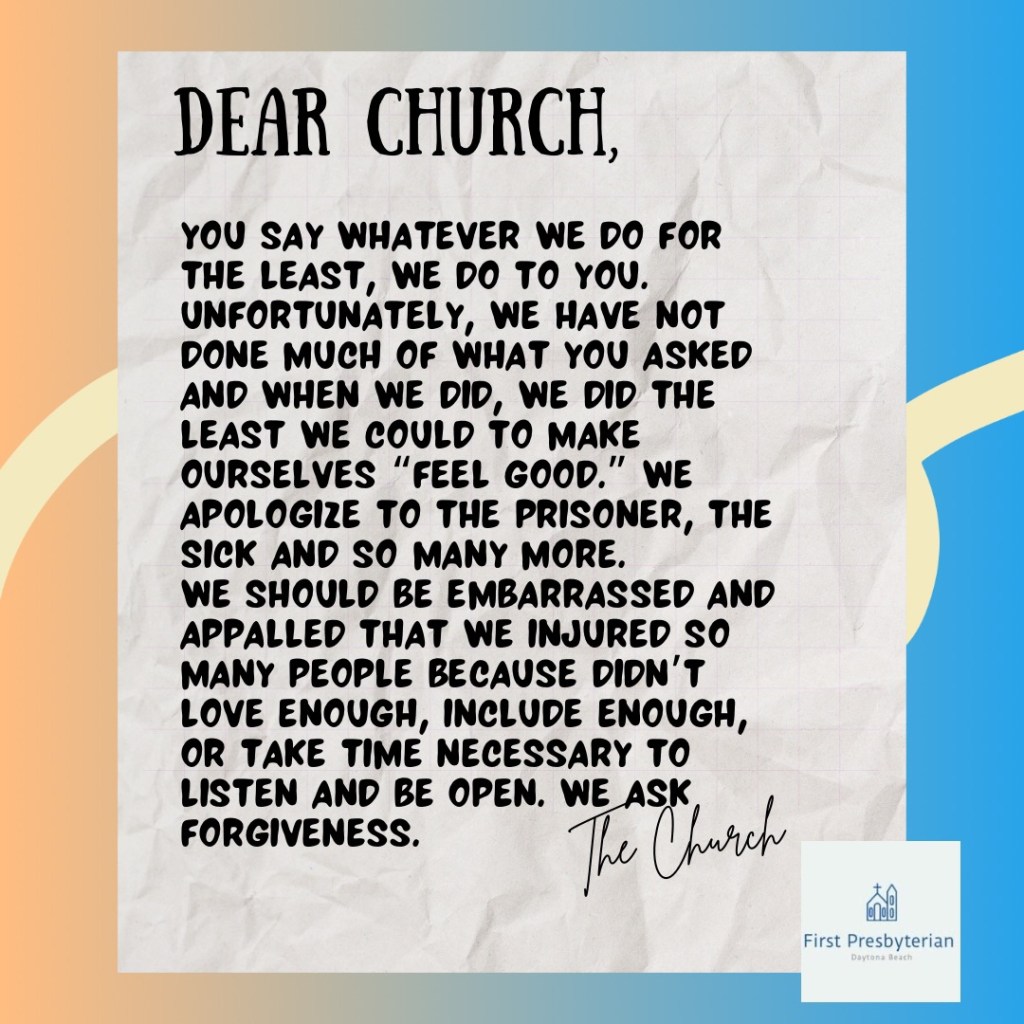 DEAR CHURCH,
YOU SAY WHATEVER WE DO FOR
THE LEAST, WE DO TO YOU.
UNFORTUNATELY, WE HAVE NOT
DONE MUCH OF WHAT YOU ASKED
AND WHEN WE DID, WE DID THE
LEAST WE COULD TO MAKE
OURSELVES "FEEL GOOD." WE
APOLOGIZE TO THE PRISONER, THE
SICK AND SO MANY MORE.
WE SHOULD BE EMBARRASSED AND
APPALLED THAT WE INJURED SO
MANY PEOPLE BECAUSE DIDN'T
LOVE ENOUGH, INCLUDE ENOUGH,
OR TAKE TIME NECESSARY TO
LISTEN AND BE OPEN. WE ASK
FORGIVENESS.
The Church
First Presbyterian
Daytona Beach